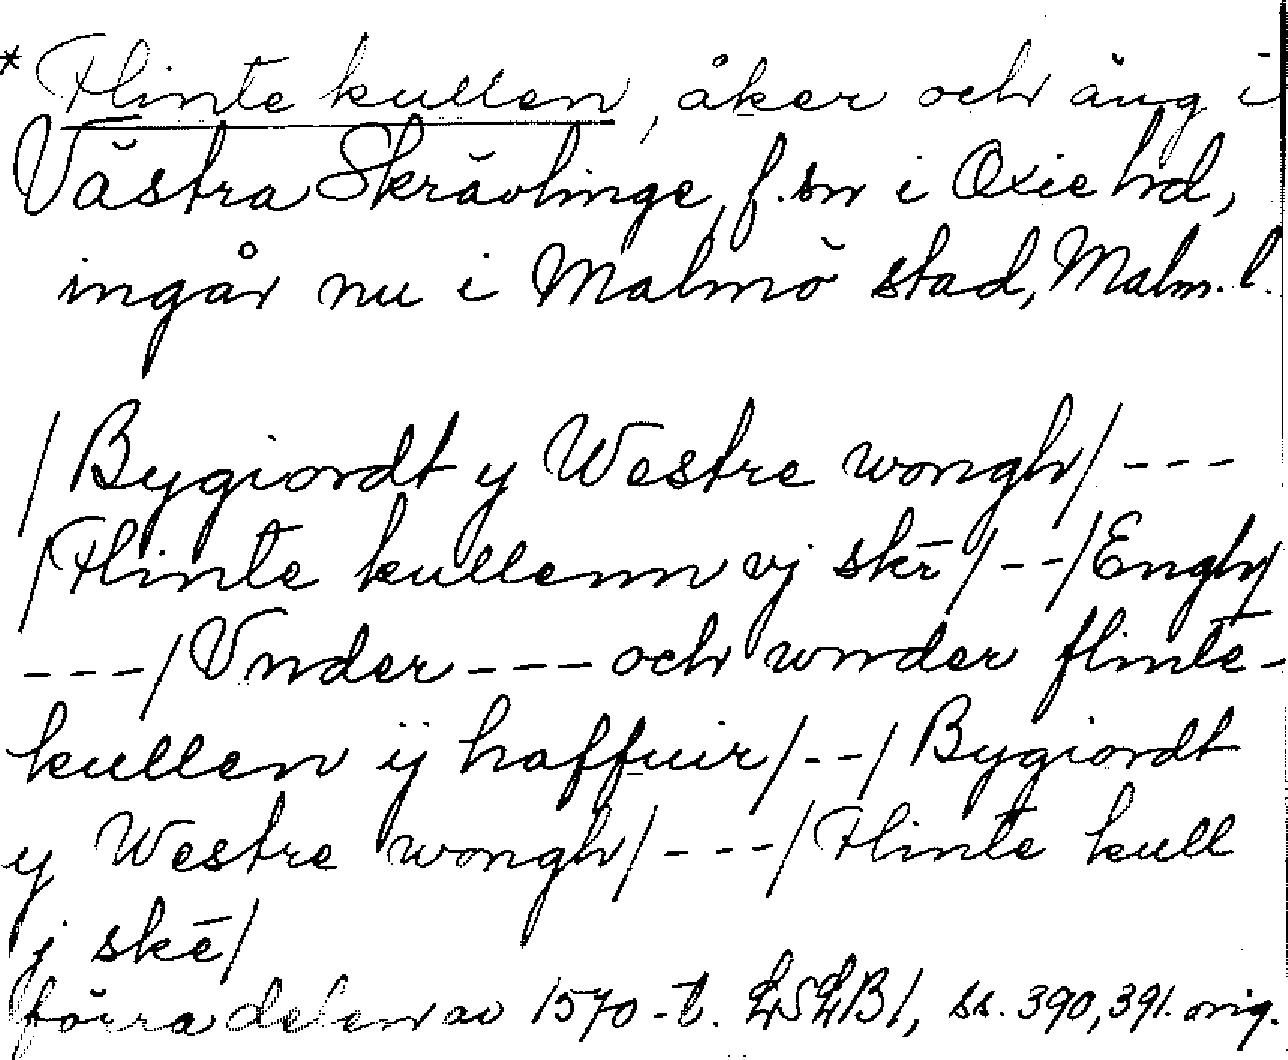 * Flinte kullen, åker och äng i
Västra Skrävlinge, f. sn i Oxie hd,
ingår nu i Malmö stad, Malm. l.
/Bygiordt y Westre wongh/ ---
/Flinte kullenn vj skē/--/Engh/
---/Vnder --- och wnder flinte-
kullen ij haffuir/--/Bygiordt
y Westre wongh/---/Flinte kull
j skē/
förra delen av 1570-t. LSLB 1, ss. 390, 391. orig.